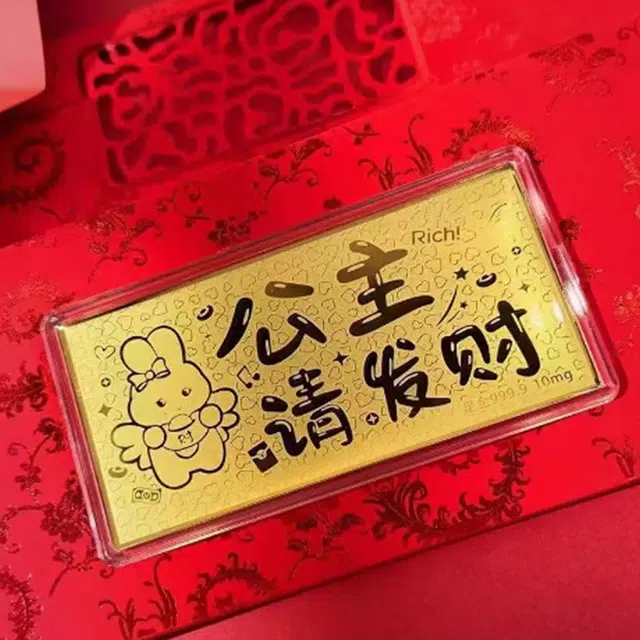 Rich!
公主
请发财
足金999.9 10mg
财